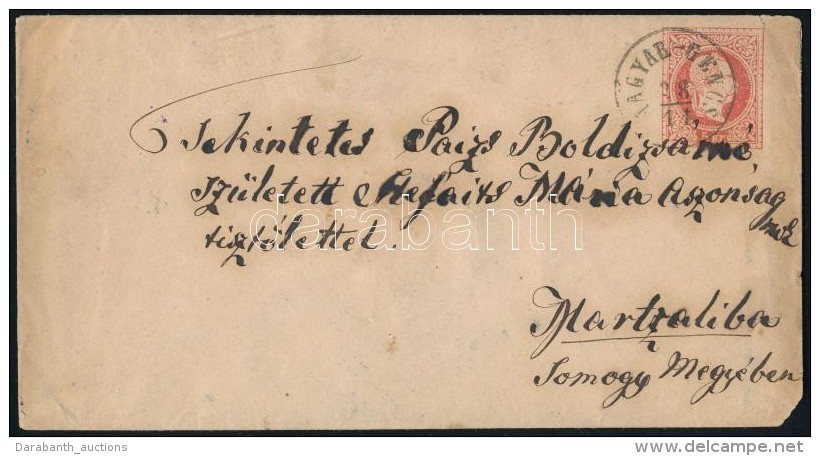 NAGYAB-GENCS
28
11
Tekintetes Paizs Boldizsárné
született Stefaits Mária Aszonság
nak
tisztelettel.
Martzaliba
Somogy Megyében
darabanth
Darabanth_auctions
delcampe.net